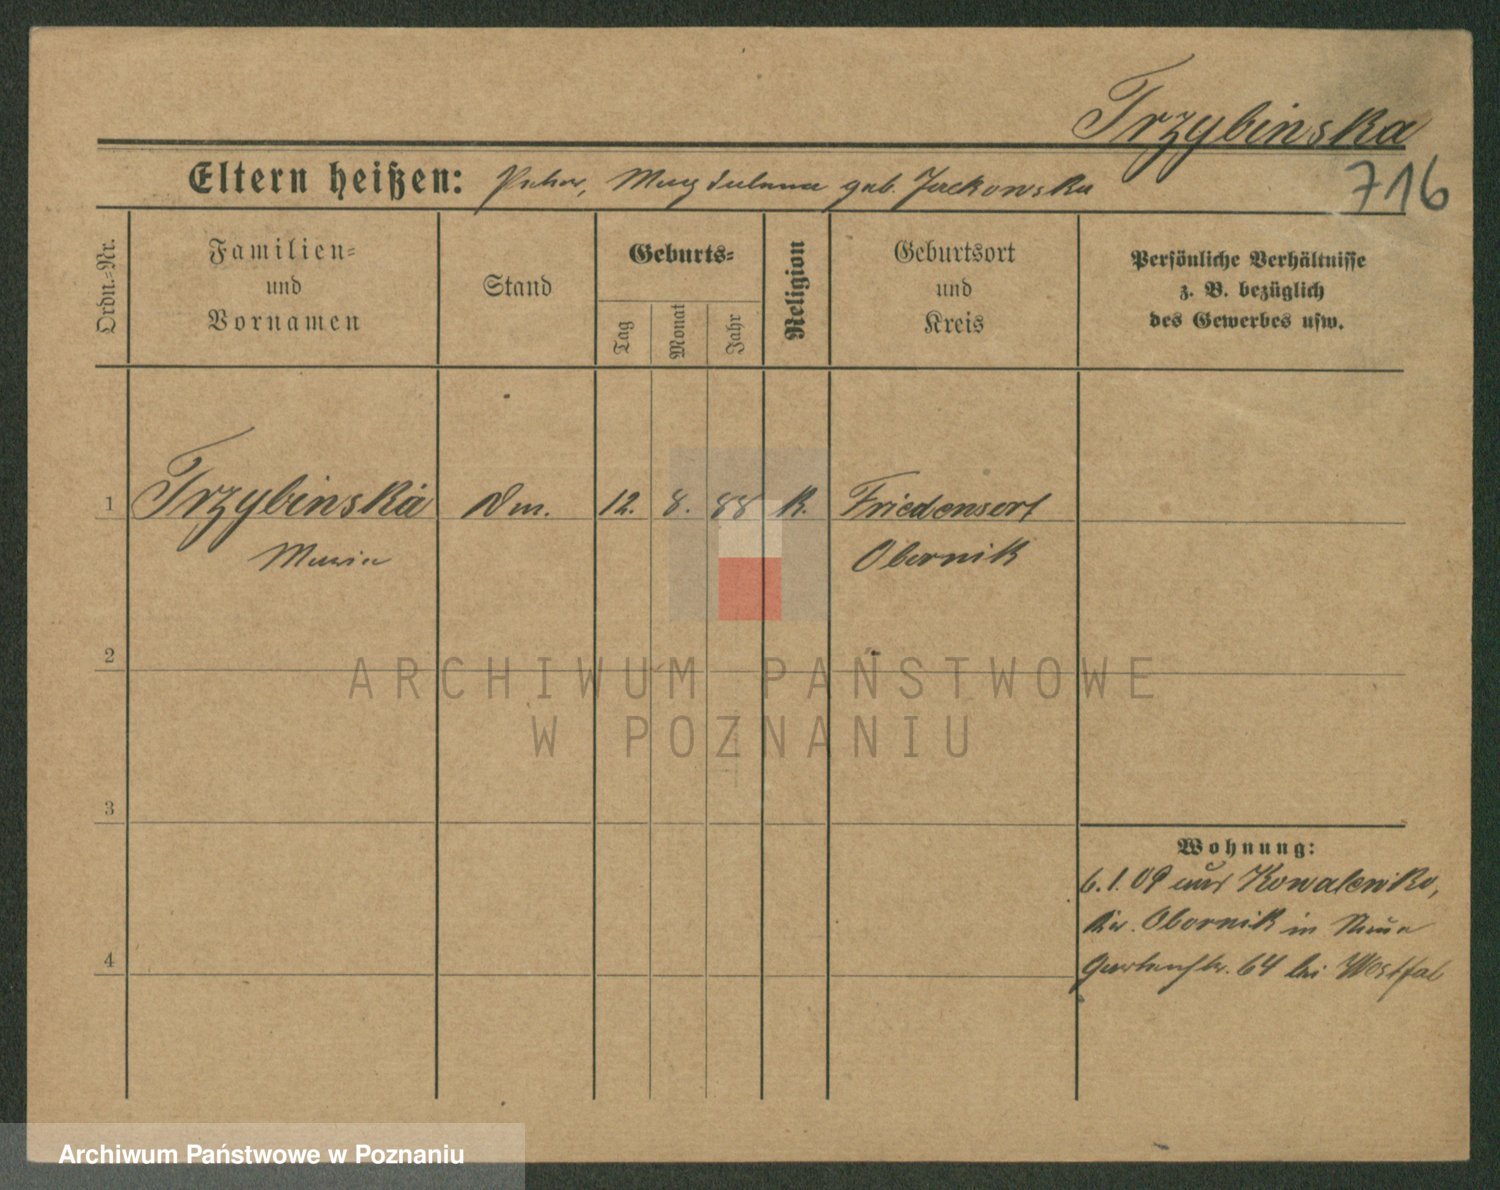 Trzybinska
716
Eltern heißen: Peter, Magdalena geb. Jackowska
Ordn.-Nr.
Familien-
und
Vornamen
Stand
Geburts-
Tag
Monat
Jahr
Religion
Geburtsort
und
Kreis
Persönliche Verhältnisse
z. B. bezüglich
des Gewerbes usw.
1 Trzybinska Dm. 12. 8. 88 K. Friedensort
Maria Obornik
2
ARCHIWUM PAŃSTWOWE
W POZNANIU
3
Wohnung:
6.1.09 aus Kowalewko,
Kr. Obornik in Neue
4
Gartenstr. 64 bei Westfal
Archiwum Państwowe w Poznaniu